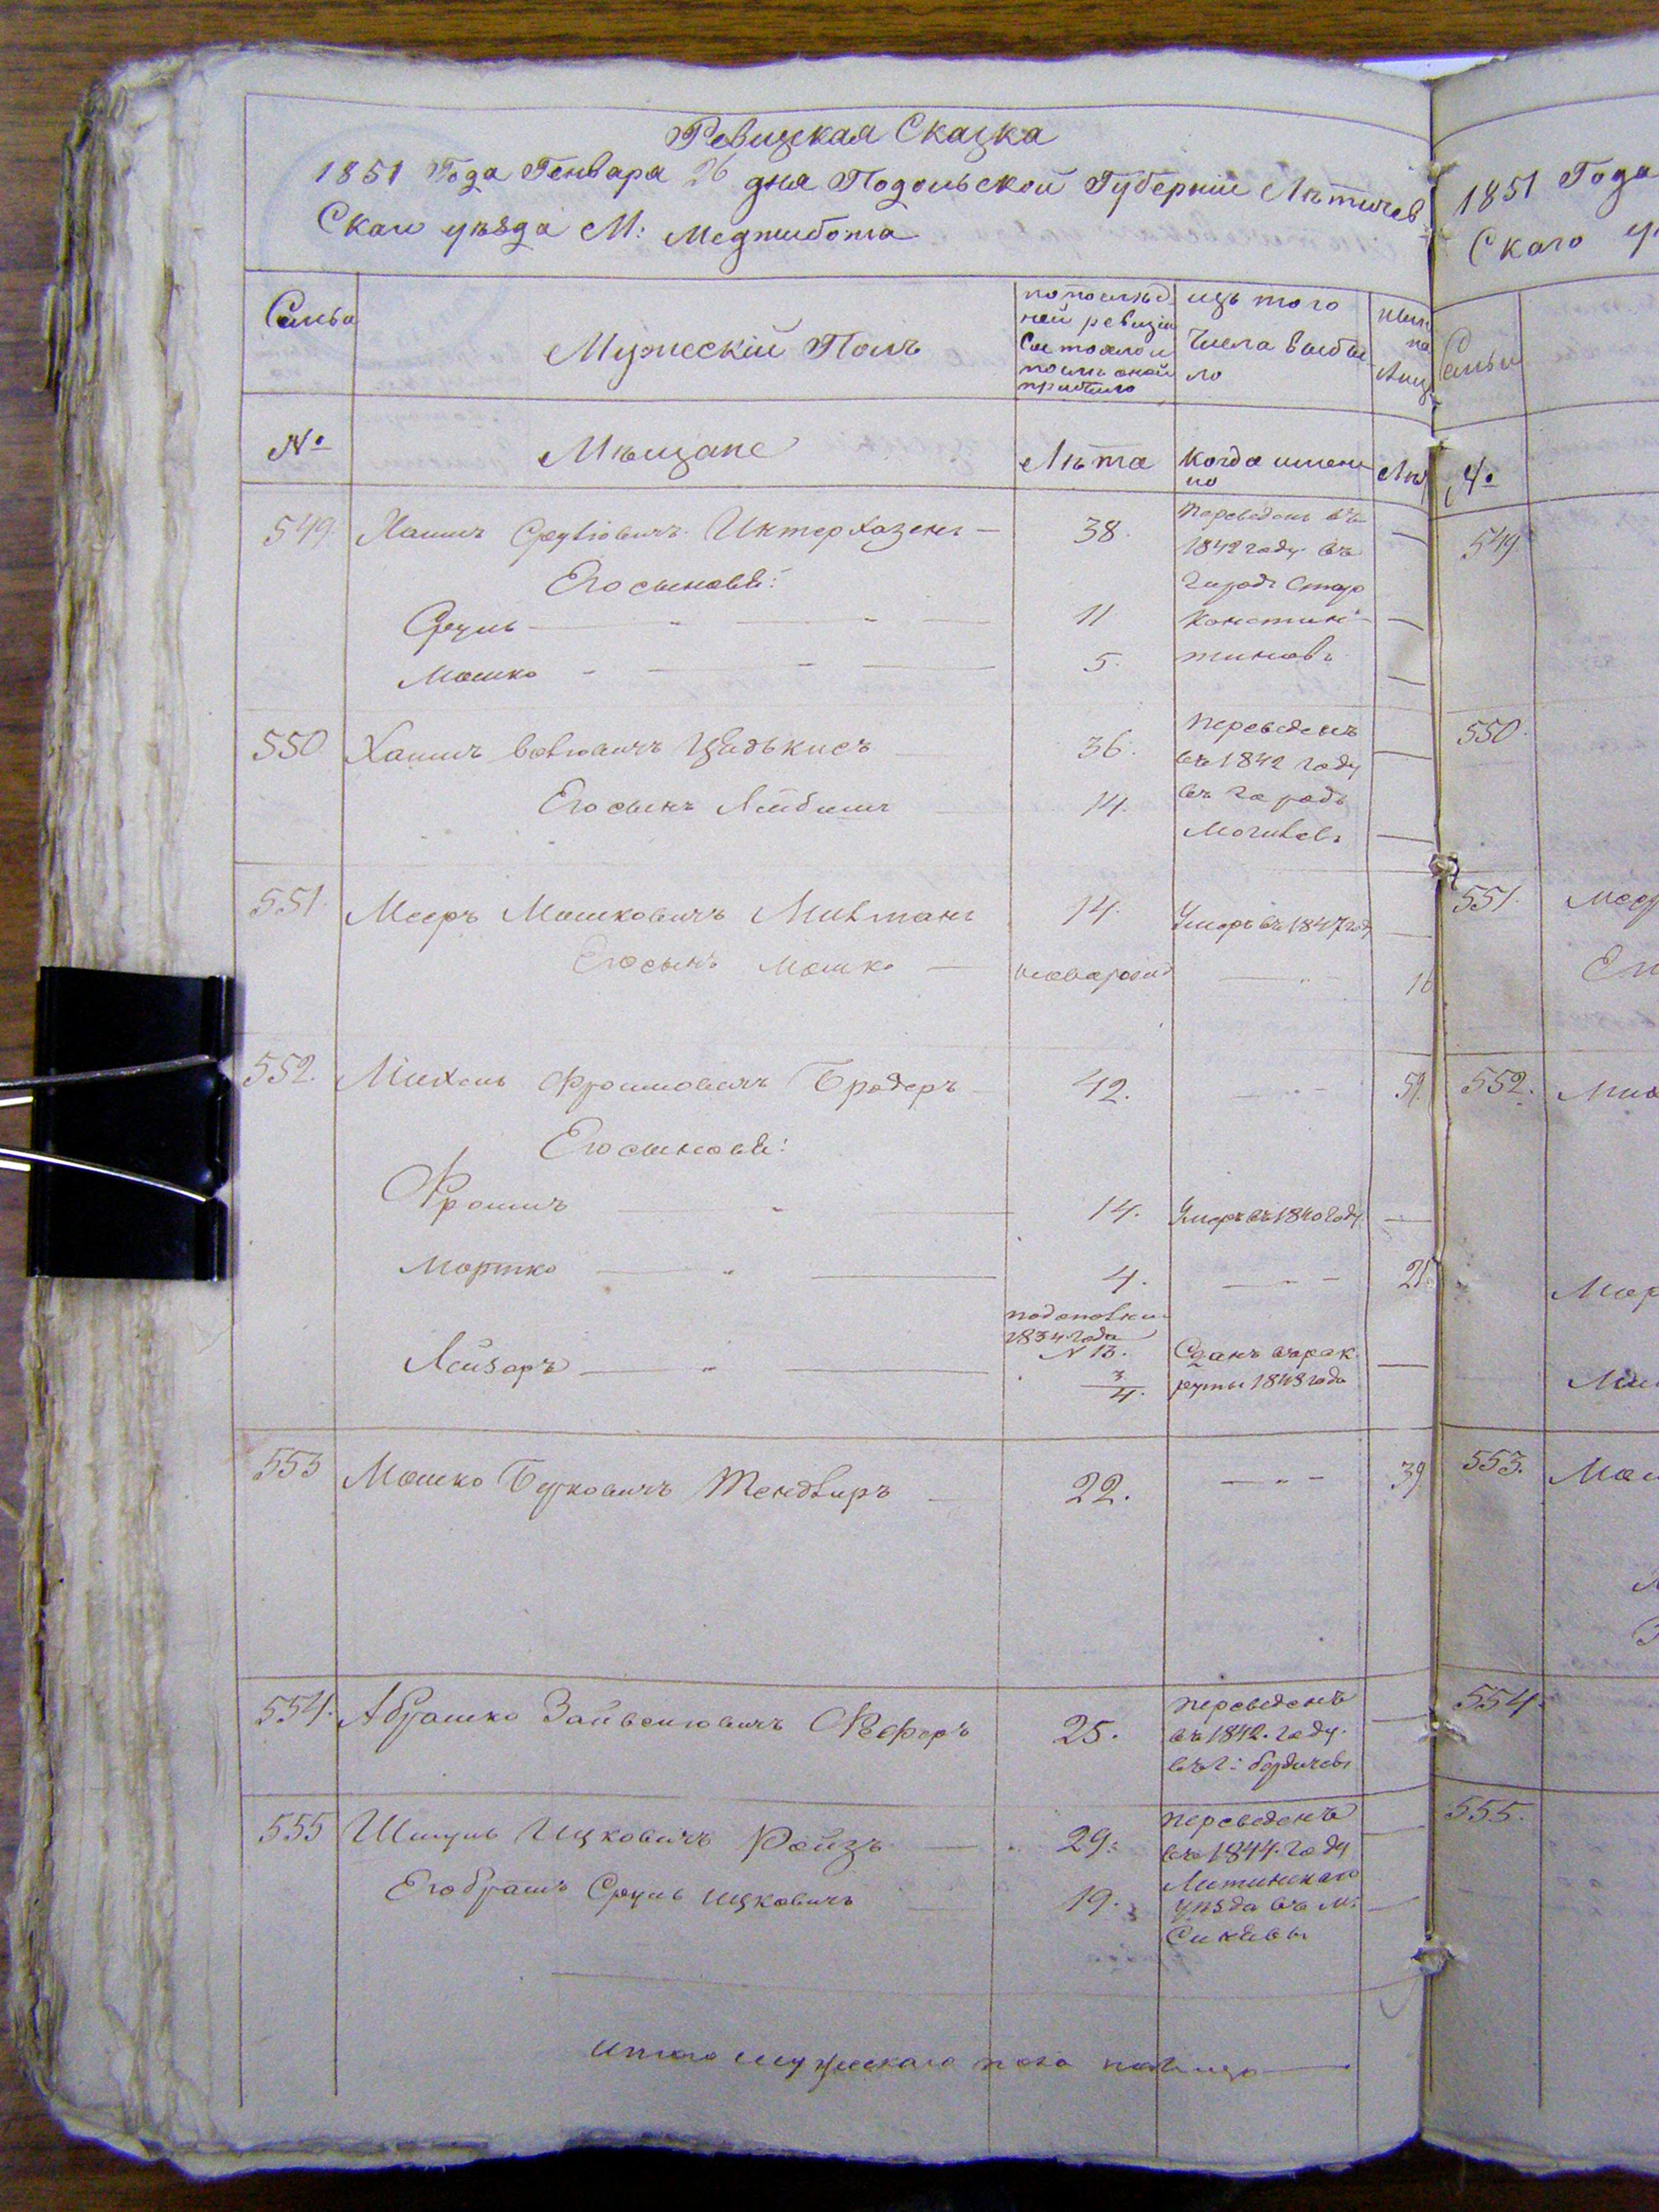 Ревизкая Сказка
1851 Года Генваря 26 дня Подольской Губернии Летичев
Скаи уѣзда М: Меджибожа
Семьи
Мужескій Полъ
по послѣд
ней ревизіи
Состояло и
послѣ оной
прибыло
изъ того
Числа выбы
ло
ныне
на
лицо
№
Мѣщане
Лѣта
Когда имен
но
Лѣт
549. Хаимъ Сруліовичъ Интерхазенъ — 38. Переведенъ въ —
1842 году въ
городъ Старо
Констан
тиновъ
Его сыновья:
Сруль — " — " — 11 —
Мошко - — - — 5. —
550 Хаимъ Волковичъ Цвадькисъ 36. Переведенъ
въ 1842 году —
въ городъ
Могилевъ —
Его сынъ Лейбишъ 14.
551. Мееръ Мошковичъ Милманъ 14. Умеръ въ 1847 году —
Его сынъ Мошко — новорожд — " — 16
552. Михель Фроимовичъ Бродеръ 42. — " — 59.
Его сыновья:
Фроимъ — " — 14. Умеръ въ 1840 году —
Мортко — " — 4. — " — 21
подополни
1834 года
№ 13.
Лейзоръ — " — 3/4. Сданъ в рек
руты 1848 года —
553 Мошко Берковичъ Тендлиръ — 22. — " — 39
554. Абрашко Зайвеліовичъ Феферъ 25. переведенъ
въ 1842. году. —
въ г: Бердичевъ
555 Шмуль Ицковичъ Ройзъ — 29: переведенъ
въ 1844. году —
Литинскаго
уѣзда въ м: —
Его братъ Сруль Ицковичъ 19.
итого мужескаго пола налицо —
1851 Года
Скаго у
Семьи
№
549
550.
551. Мее
552. Мих
Мор
553. Мош
554.
555.